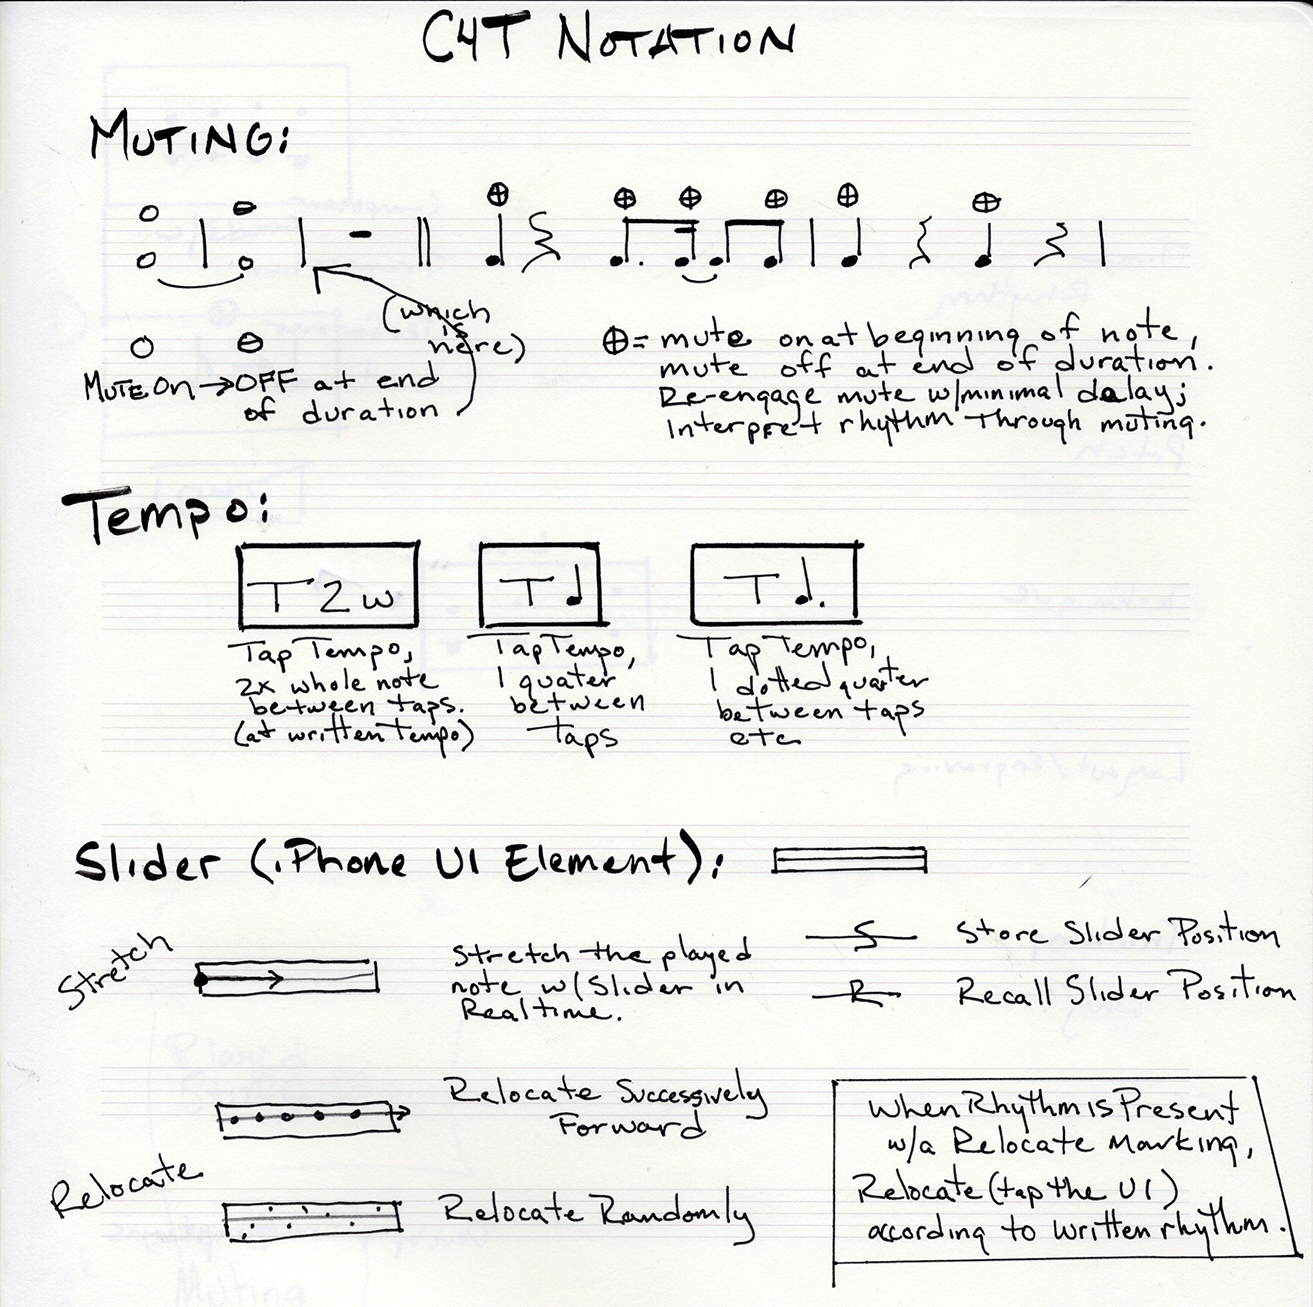 C4T NOTATION
MUTING:
(which
is
here)
MUTE ON → OFF at end
of duration
⊕ = mute on at beginning of note,
mute off at end of duration.
Re-engage mute w/minimal delay;
Interpret rhythm through muting.
Tempo:
T 2 w
T ♩
T ♩.
Tap Tempo,
2x whole note
between taps.
(at written Tempo)
Tap Tempo,
1 quater
between
taps
Tap Tempo,
1 dotted quater
between taps
etc
Slider (iPhone UI Element):
Stretch
Stretch the played
note w/Slider in
Realtime.
S Store Slider Position
R Recall Slider Position
Relocate Successively
Forward
Relocate
Relocate Randomly
When Rhythm is Present
w/a Relocate Marking,
Relocate (tap the UI)
according to written rhythm.